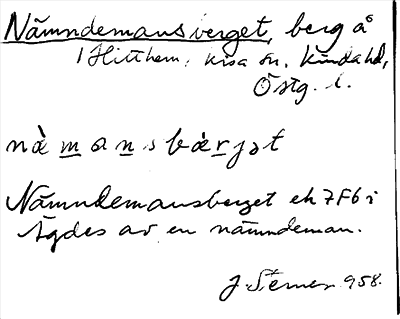 Nämndemansberget, berg å
Hitthem, Kisa sn, Kinda hd,
Östg. l.
nä̀mansbä̀rjət
Nämndemansberget ek 7F6i
Ägdes av en nämndeman.
J. Sterner 958.